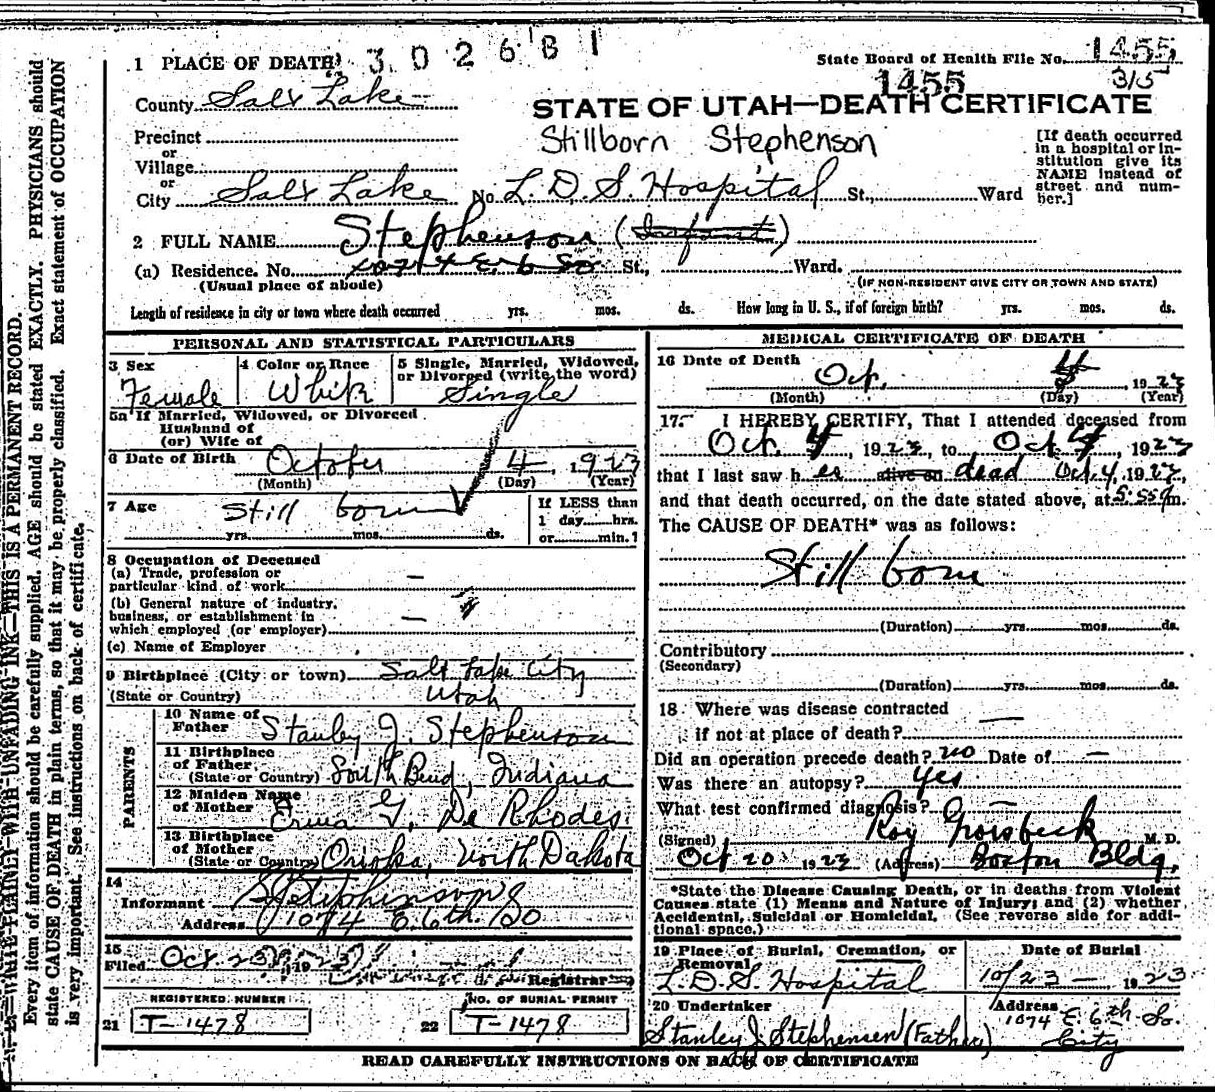 3 0 2 6 8 1
State Board of Health File No. 1455
1455 315
1 PLACE OF DEATH
County Salt Lake
STATE OF UTAH—DEATH CERTIFICATE
Stillborn Stephenson
Precinct
or
Village
or
City Salt Lake No. L. D. S. Hospital St., Ward
[If death occurred in a hospital or institution give its NAME instead of street and number.]
2 FULL NAME Stephenson (Infant)
(a) Residence. No. 1074 E. 6 So St., Ward.
(Usual place of abode) (IF NON-RESIDENT GIVE CITY OR TOWN AND STATE)
Length of residence in city or town where death occurred yrs. mos. ds. How long in U. S., if of foreign birth? yrs. mos. ds.
PERSONAL AND STATISTICAL PARTICULARS
3 Sex Female
4 Color or Race White
5 Single, Married, Widowed, or Divorced (write the word) Single
5a If Married, Widowed, or Divorced
Husband of
(or) Wife of
6 Date of Birth October 4, 1923
(Month) (Day) (Year)
7 Age Still born
yrs. mos. ds.
If LESS than
1 day hrs.
or min.?
8 Occupation of Deceased
(a) Trade, profession or
particular kind of work —
(b) General nature of industry,
business, or establishment in
which employed (or employer) —
(c) Name of Employer
9 Birthplace (City or town) Salt Lake City
(State or Country) Utah
PARENTS
10 Name of Father Stanley J. Stephenson
11 Birthplace of Father (State or Country) South Bend, Indiana
12 Maiden Name of Mother Erma G. De Rhodes
13 Birthplace of Mother (State or Country) Oriska, North Dakota
14
Informant S J Stephenson
Address 1074 E. 6th. So
15
Filed Oct 23, 1923 Registrar
REGISTERED NUMBER
21 T-1478
NO. OF BURIAL PERMIT
22 T-1478
MEDICAL CERTIFICATE OF DEATH
16 Date of Death Oct. 4 1923
(Month) (Day) (Year)
17. I HEREBY CERTIFY, That I attended deceased from
Oct. 4, 1923, to Oct 4, 1923
that I last saw h er alive on dead Oct. 4, 1923,
and that death occurred, on the date stated above, at 5:55 m.
The CAUSE OF DEATH* was as follows:
Still born
(Duration) yrs. mos. ds.
Contributory
(Secondary)
(Duration) yrs. mos. ds.
18 Where was disease contracted
if not at place of death? —
Did an operation precede death? no Date of —
Was there an autopsy? yes
What test confirmed diagnosis? —
(Signed) Roy Groesbeck M. D.
Oct 20 1923 (Address) Boston Bldg.
*State the Disease Causing Death, or in deaths from Violent
Causes state (1) Means and Nature of Injury; and (2) whether
Accidental, Suicidal or Homicidal. (See reverse side for addi-
tional space.)
19 Place of Burial, Cremation, or Removal
L. D. S. Hospital
Date of Burial
10/23 — 1923
20 Undertaker
Stanley J. Stephensen (Father)
Address
1074 E. 6th. So.
City
READ CAREFULLY INSTRUCTIONS ON BACK OF CERTIFICATE
WRITE PLAINLY WITH UNFADING INK—THIS IS A PERMANENT RECORD.
Every item of information should be carefully supplied. AGE should be stated EXACTLY. PHYSICIANS should
state CAUSE OF DEATH in plain terms, so that it may be properly classified. Exact statement of OCCUPATION
is very important. See instructions on back of certificate.